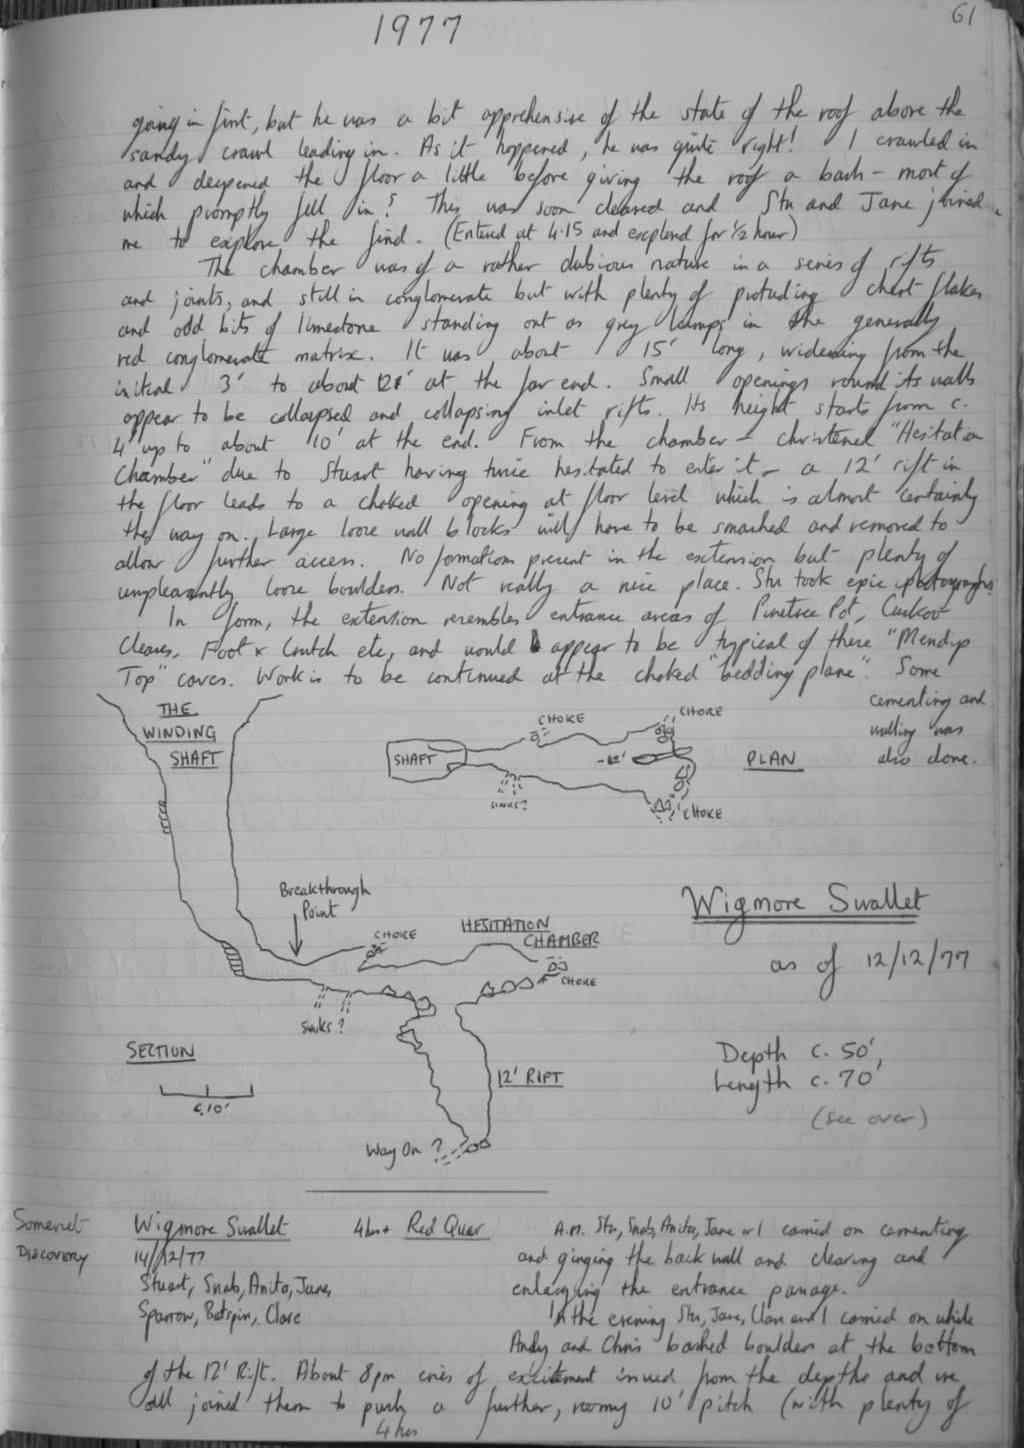 1977
61
going in first, but he was a bit apprehensive of the state of the roof above the
sandy crawl leading in. As it happened, he was quite right! I crawled in
and deepened the floor a little before giving the roof a bash - most of
which promptly fell in! This was soon cleared and Stu and Jane joined
me to explore the find. (Entered at 4.15 and explored for 1/2 hour)
The chamber was of a rather dubious nature in a series of rifts
and joints, and still in conglomerate but with plenty of protuding chert flakes
and odd bits of limestone standing out as grey lumps in the generally
red conglomerate matrix. It was about 15' long, widening from the
initial 3' to about 12' at the far end. Small openings round its walls
appear to be collapsed and collapsing inlet rifts. Its height starts from c.
4' up to about 10' at the end. From the chamber - christened "Hesitation
Chamber" due to Stuart having twice hesitated to enter it - a 12' rift in
the floor leads to a choked opening at floor level which is almost certainly
the way on. Large loose wall blocks will have to be smashed and removed to
allow further access. No formations present in the extension but plenty of
unpleasantly loose boulders. Not really a nice place. Stu took epic photographs.
In form, the extension resembles entrance areas of Pinetree Pot, Cuckoo
Cleeves, Foot x Crutch etc, and would appear to be typical of these "Mendip
Top" caves. Work is to be continued at the choked "bedding plane". Some
cementing and
walling was
also done.
THE
WINDING
SHAFT
SHAFT
CHOKE
CHOKE
-12'
PLAN
SINKS?
CHOKE
Breakthrough
Point
CHOKE
HESITATION
CHAMBER
CHOKE
Sinks?
SECTION
c.10'
12' RIFT
Way On?
Wigmore Swallet
as of 12/12/77
Depth c. 50',
Length c. 70'
(see over)
Somerset
Discovery
Wigmore Swallet 4hrs Red Quar
14/12/77
Stuart, Snab, Anita, Jane,
Sparrow, Batspin, Clare
A.M. Stu, Snab, Anita, Jane & I carried on cementing
and ginging the back wall and clearing and
enlarging the entrance passage.
In the evening Stu, Jane, Clare and I carried on while
Andy and Chris bashed boulders at the bottom
of the 12' Rift. About 8pm cries of excitement issued from the depths and we
all joined them to push a further, roomy 10' pitch (with plenty of
4 hrs